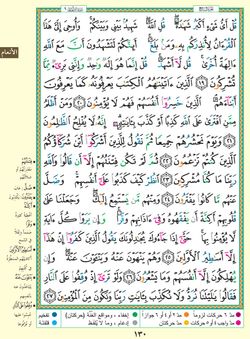 قُلْ أَيُّ شَىْءٍ أَكْبَرُ شَهَٰدَةً قُلِ ٱللَّهُ شَهِيدٌۢ بَيْنِى وَبَيْنَكُمْ وَأُوحِىَ إِلَىَّ هَٰذَا
ٱلْقُرْءَانُ لِأُنذِرَكُم بِهِۦ وَمَنۢ بَلَغَ أَئِنَّكُمْ لَتَشْهَدُونَ أَنَّ مَعَ ٱللَّهِ
ءَالِهَةً أُخْرَىٰ قُل لَّآ أَشْهَدُ قُلْ إِنَّمَا هُوَ إِلَٰهٌ وَٰحِدٌ وَإِنَّنِى بَرِىٓءٌ مِّمَّا
تُشْرِكُونَ ١٩ ٱلَّذِينَ ءَاتَيْنَٰهُمُ ٱلْكِتَٰبَ يَعْرِفُونَهُۥ كَمَا يَعْرِفُونَ
أَبْنَآءَهُمُ ٱلَّذِينَ خَسِرُوٓا۟ أَنفُسَهُمْ فَهُمْ لَا يُؤْمِنُونَ ٢٠ وَمَنْ أَظْلَمُ
مِمَّنِ ٱفْتَرَىٰ عَلَى ٱللَّهِ كَذِبًا أَوْ كَذَّبَ بِـَٔايَٰتِهِۦٓ إِنَّهُۥ لَا يُفْلِحُ ٱلظَّٰلِمُونَ
٢١ وَيَوْمَ نَحْشُرُهُمْ جَمِيعًا ثُمَّ نَقُولُ لِلَّذِينَ أَشْرَكُوٓا۟ أَيْنَ شُرَكَآؤُكُمُ
ٱلَّذِينَ كُنتُمْ تَزْعُمُونَ ٢٢ ثُمَّ لَمْ تَكُن فِتْنَتُهُمْ إِلَّآ أَن قَالُوا۟ وَٱللَّهِ
رَبِّنَا مَا كُنَّا مُشْرِكِينَ ٢٣ ٱنظُرْ كَيْفَ كَذَبُوا۟ عَلَىٰٓ أَنفُسِهِمْ وَضَلَّ
عَنْهُم مَّا كَانُوا۟ يَفْتَرُونَ ٢٤ وَمِنْهُم مَّن يَسْتَمِعُ إِلَيْكَ وَجَعَلْنَا عَلَىٰ
قُلُوبِهِمْ أَكِنَّةً أَن يَفْقَهُوهُ وَفِىٓ ءَاذَانِهِمْ وَقْرًا وَإِن يَرَوْا۟ كُلَّ ءَايَةٍ
لَّا يُؤْمِنُوا۟ بِهَا حَتَّىٰٓ إِذَا جَآءُوكَ يُجَٰدِلُونَكَ يَقُولُ ٱلَّذِينَ كَفَرُوٓا۟
إِنْ هَٰذَآ إِلَّآ أَسَٰطِيرُ ٱلْأَوَّلِينَ ٢٥ وَهُمْ يَنْهَوْنَ عَنْهُ وَيَنْـَٔوْنَ عَنْهُ وَإِن
يُهْلِكُونَ إِلَّآ أَنفُسَهُمْ وَمَا يَشْعُرُونَ ٢٦ وَلَوْ تَرَىٰٓ إِذْ وُقِفُوا۟ عَلَى ٱلنَّارِ
فَقَالُوا۟ يَٰلَيْتَنَا نُرَدُّ وَلَا نُكَذِّبَ بِـَٔايَٰتِ رَبِّنَا وَنَكُونَ مِنَ ٱلْمُؤْمِنِينَ ٢٧
الأنعام
١٣٠